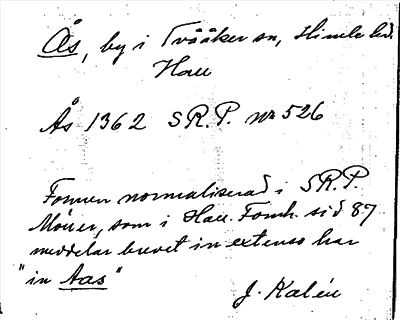 Ås, by i Tvååker sn, Himle hd.
Hall
Ås 1362 S.R.P. nr 526
Formen normaliserad i S.R.P.
som i Hall. Fornh. sid 87
meddelar brevet in extenso har
"in Aas"
J. Kalén